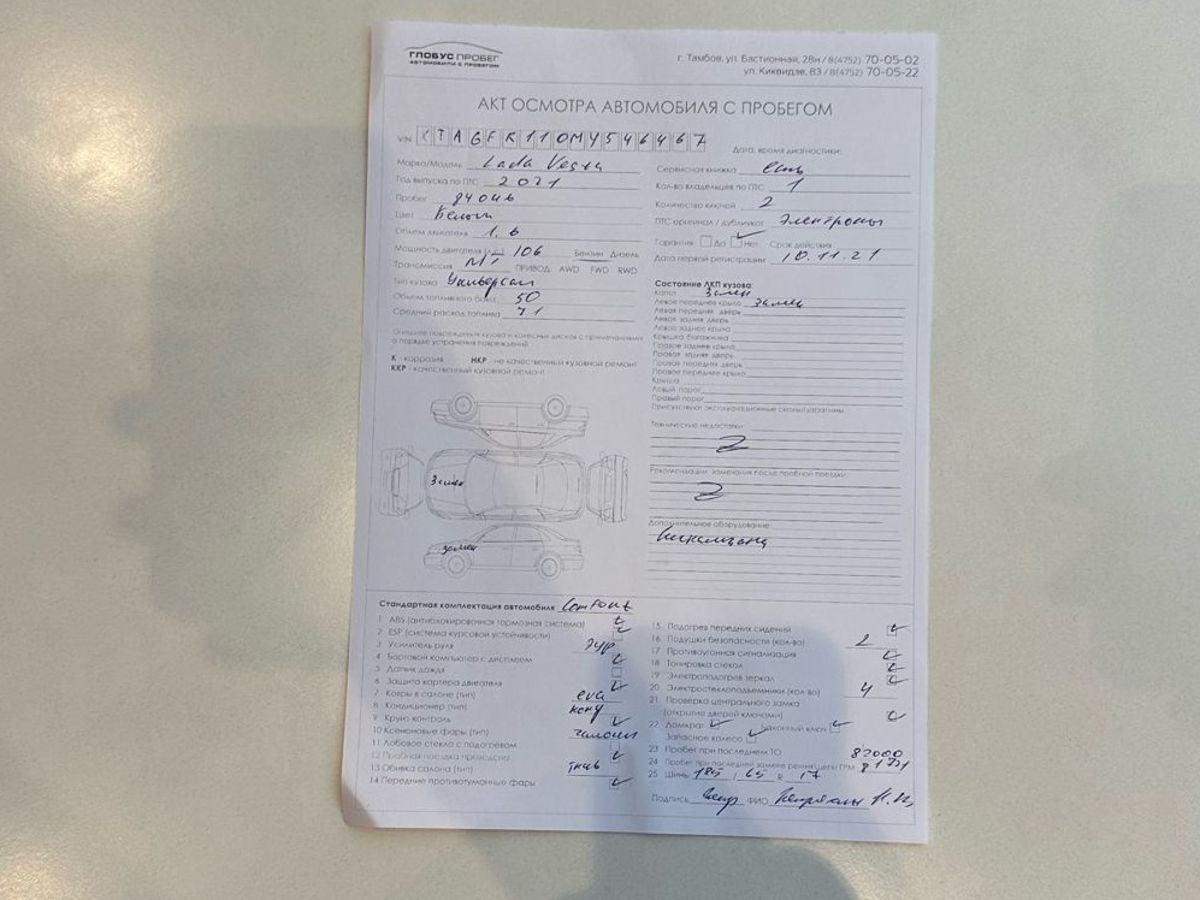 ГЛОБУС ПРОБЕГ
АВТОМОБИЛИ С ПРОБЕГОМ
г. Тамбов, ул. Бастионная, 28н / 8(4752) 70-05-02
ул. Киквидзе, 83 / 8(4752) 70-05-22
АКТ ОСМОТРА АВТОМОБИЛЯ С ПРОБЕГОМ
VIN XTAGFK110MY546467
Дата, время диагностики:
Марка/Модель Lada Vesta
Год выпуска по ПТС 2021
Пробег
Цвет Белый
Объем двигателя 1.6
Мощность двигателя (л.с.) 106 Бензин Дизель
Трансмиссия МТ ПРИВОД: AWD FWD RWD
Тип кузова Универсал
Объем топливного бака 50
Средний расход топлива 7.1
Сервисная книжка есть
Кол-во владельцев по ПТС 1
Количество ключей 2
ПТС оригинал / дубликат
Гарантия Да Нет Срок действия
Дата первой регистрации 10.11.21
Внешнее повреждения кузова и колесных дисков с примечаниями
о порядке устранения повреждений
К - коррозия НКР - не качественный кузовной ремонт
ККР - качественный кузовной ремонт
Состояние ЛКП кузова:
Капот Замен
Левое переднее крыло замен
Левая передняя дверь
Левая задняя дверь
Левое заднее крыло
Крышка багажника
Правое заднее крыло
Правая задняя дверь
Правая передняя дверь
Правое переднее крыло
Крыша
Левый порог
Правый порог
Присутствуют эксплуатационные сколы/царапины
Технические недостатки:
Z
Рекомендации, замечания после пробной поездки:
Z
Дополнительное оборудование:
Замен
замен
Стандартная комплектация автомобиля Comfort
1 ABS (антиблокированная тормозная система)
2 ESP (система курсовой устойчивости)
3 Усилитель руля ЭУР
4 Бортовой компьютер с дисплеем
5 Датчик дождя
6 Защита картера двигателя
7 Ковры в салоне (тип) eva
8 Кондиционер (тип) конд
9 Круиз контроль
10 Ксеноновые фары (тип)
11 Лобовое стекло с подогревом
12 Пробная поездка проведена
13 Обивка салона (тип) ткань
14 Передние противотуманные фары
15 Подогрев передних сидений
16 Подушки безопасности (кол-во) 2
17 Противоугонная сигнализация
18 Тонировка стекол
19 Электроподогрев зеркал
20 Электростеклоподъемники (кол-во) 4
21 Проверка центрального замка
(открытие дверей ключами)
22 Домкрат Баллонный ключ
Запасное колесо
23 Пробег при последнем ТО 82000
24 Пробег при последней замене ремня/цепи ГРМ
25 Шины 185 / 65 R 17
Подпись ФИО